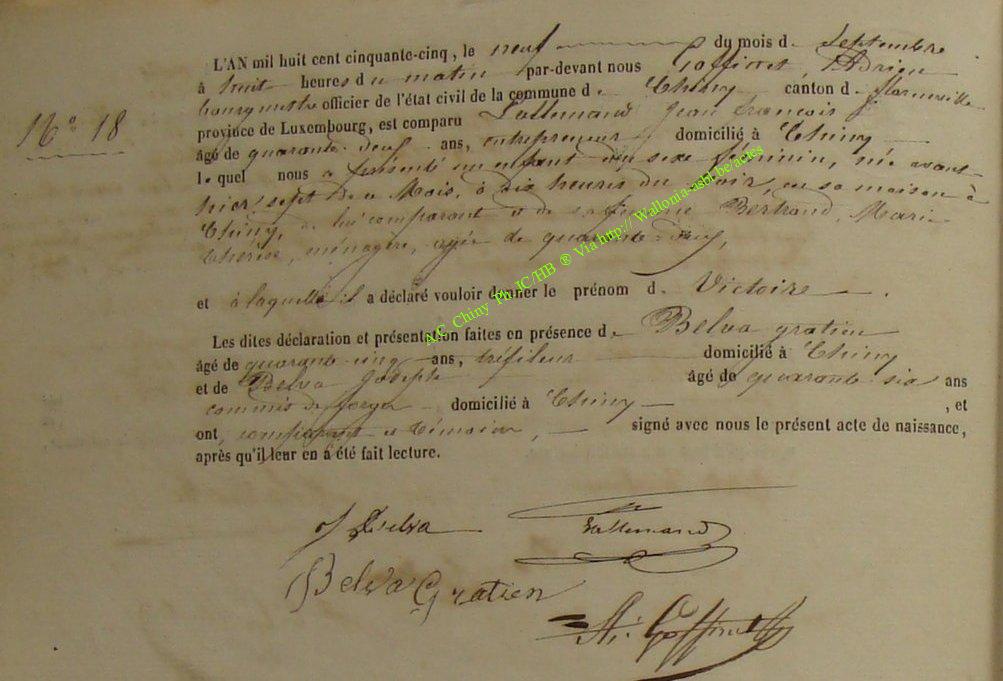 N° 18
L'AN mil huit cent cinquante-cinq, le neuf du mois de Septembre
à huit heures du matin par-devant nous Goffinet, Adrien
bourgmestre officier de l'état civil de la commune de Chiny canton de Florenville
province de Luxembourg, est comparu Lallemand Jean François
âgé de quarante-deux ans, entrepreneur domicilié à Chiny
lequel nous a présenté un enfant du sexe féminin, née avant-
hier sept de ce Mois, à dix heures du soir, en sa maison à
Chiny, de lui comparant et de sa femme Bertrand, Marie
Thérèse, ménagère, agée de quarante-deux,
et à laquelle il a déclaré vouloir donner le prénom de Victoire.
Les dites déclaration et présentation faites en présence de Belva gratien
âgé de quarante-cinq ans, tréfileur domicilié à Chiny
et de Belva Joseph âgé de quarante six ans
commis de forges domicilié à Chiny, et
ont, comparant et témoins, signé avec nous le présent acte de naissance,
après qu'il leur en a été fait lecture.
J Belva Lallemand
Belva Gratien
Ad. Goffinet
A.C. Chiny Ph JC/HB ® Via http://Wallonia-asbl.be/actes